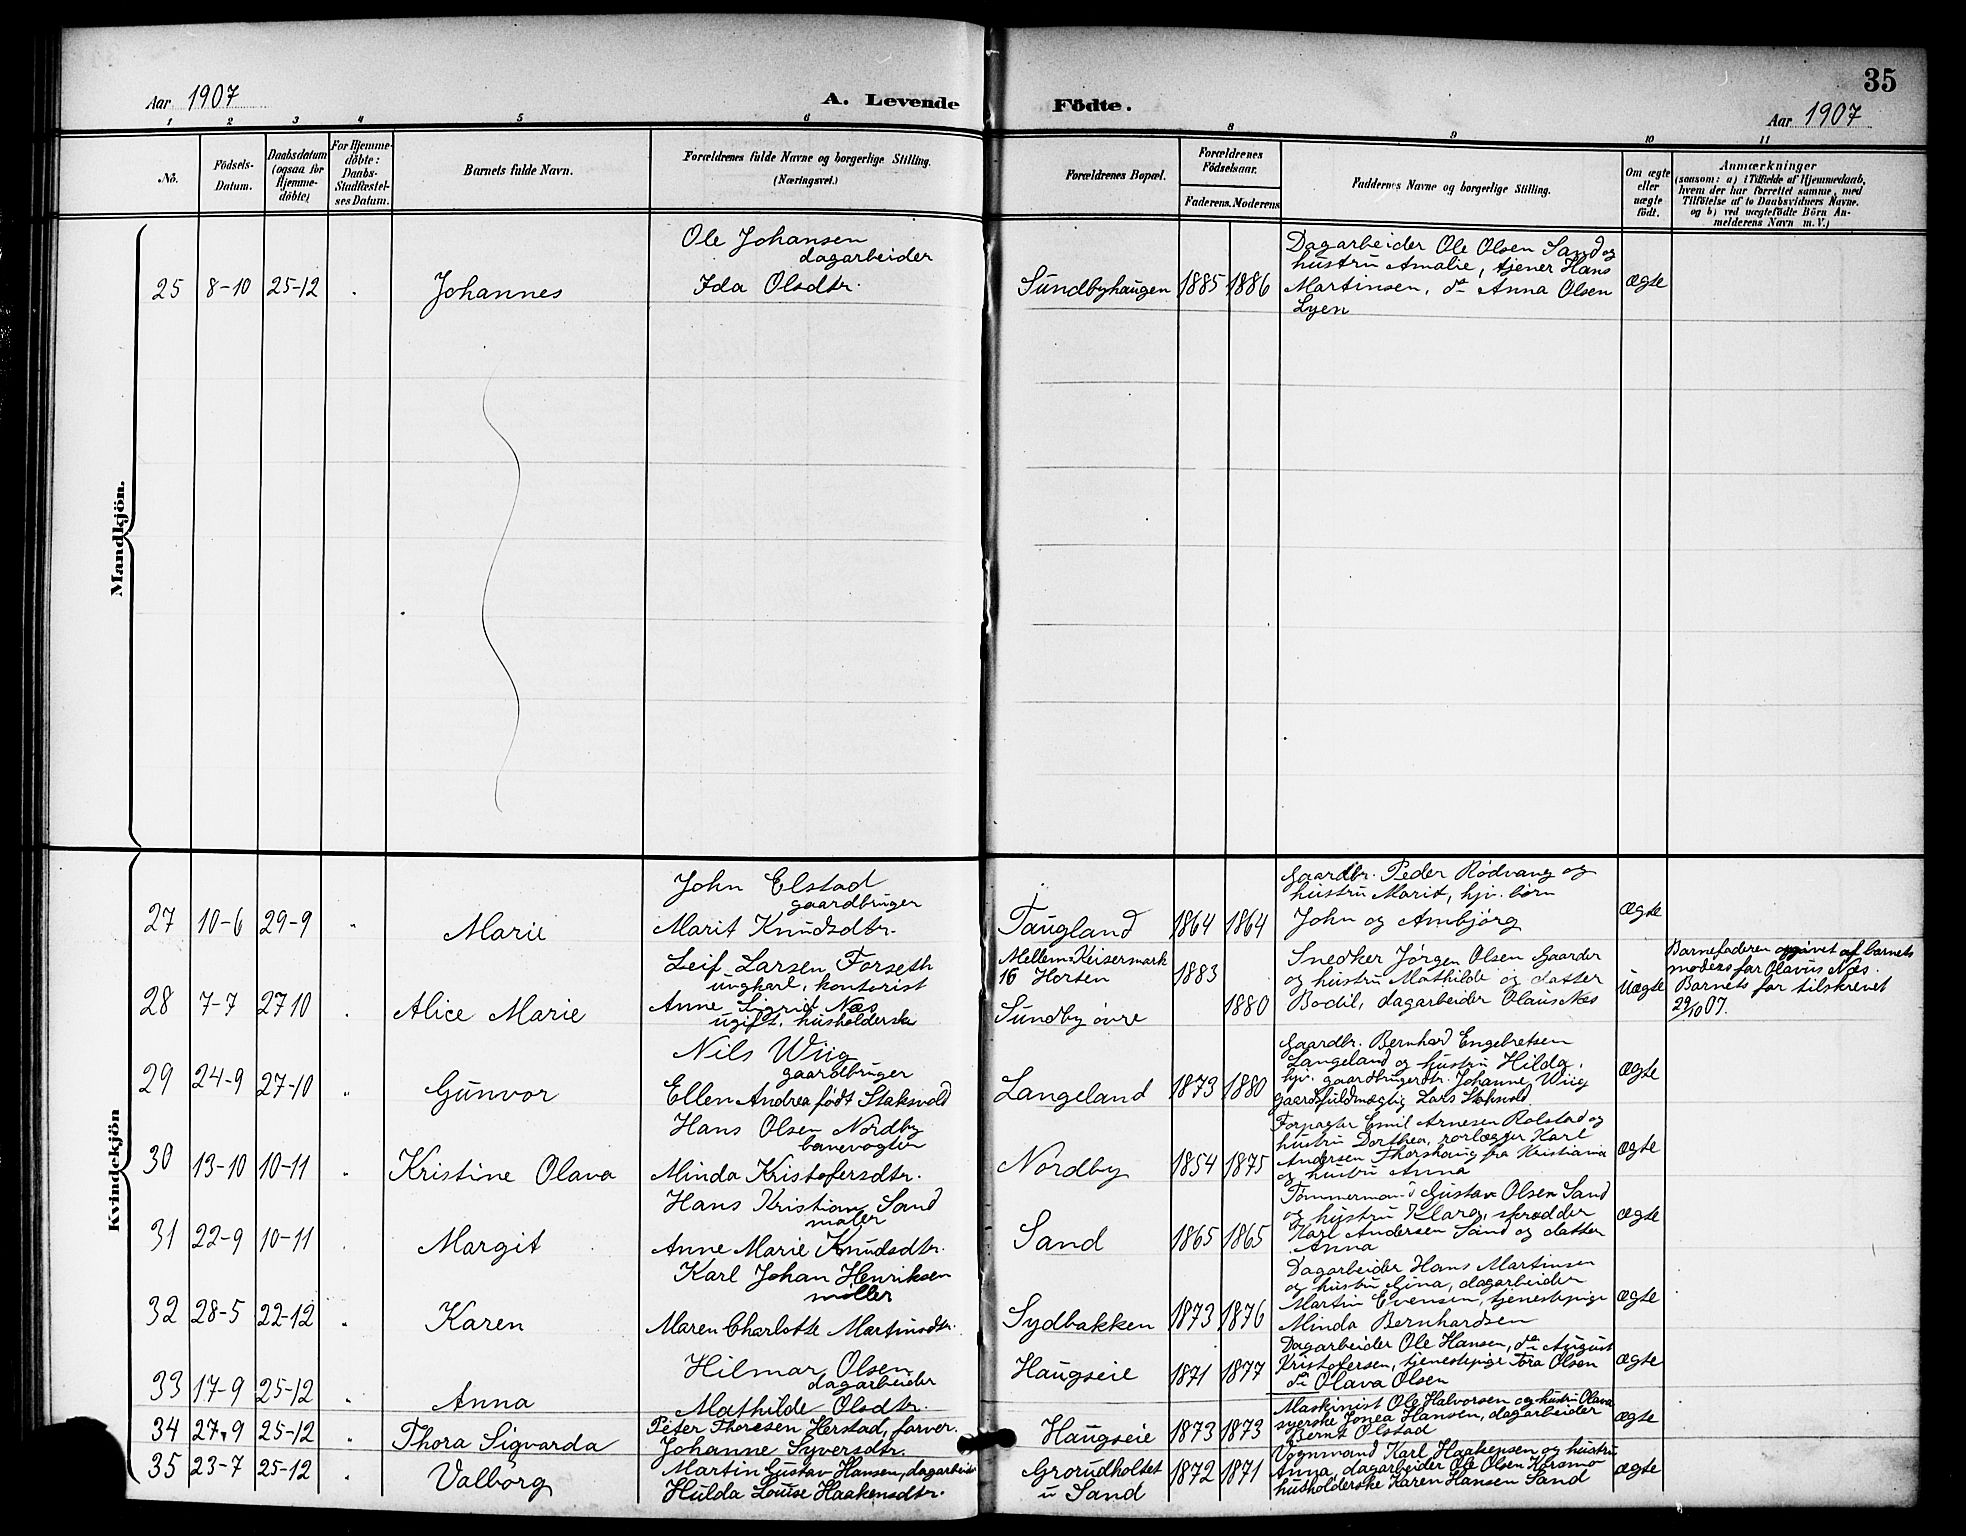 35
Aar 1907
A. Levende Födte.
Aar 1907
1 2 3 4 5 6 8 9 10 11
No.
Födsels-
Datum.
Daabsdatum
(ogsaa for
Hjemme-
döbte)
For Hjemme-
döbte:
Daabs-
Stadfæstel-
ses Datum.
Barnets fulde Navn.
Forældrenes fulde Navne og borgerlige Stilling.
(Næringsvei.)
Forældrenes Bopæl.
Forældrenes
Födselsaar.
Faderens. Moderens
Faddernes Navne og borgerlige Stilling.
Om ægte
eller
uægte
födt.
Anmærkninger
(saasom: a) i Tilfælde af Hjemmedaab,
hvem der har forrettet samme, med
Tilföielse af to Daabsvidners Navne.
og b) ved uægtefödte Börn An-
melderens Navn m. V.)
Mandkjön.
25 8-10 25-12 Johannes
Ole Johansen
dagarbeider
Ida Olsdtr.
Sundbyhaugen 1885 1886
Dagarbeider Ole Olsen Sand og
hustru Amalie, tjener Hans
Martinsen, do Anna Olsen
Lyen
Ægte
Kvindekjön
27 10-6 29-9 Marie
John Elstad
gaardbruger
Marit Knudsdtr.
Taugland 1864 1864
Gaardbr. Peder Rødvang og
hustru Marit, hjv. børn
John og Ambjørg
Ægte
28 7-7 27 10 Alice Marie
Leif Larsen Forseth
ungkarl, kontorist
Anne Sigrid Næs
ugift, husholderske
Mellem Keisermark
16 Horten 1883
Sundby øvre 1880
Snedker Jørgen Olsen Gaarder
og hustru Mathilde og datter
Bodil, dagarbeider Olaus Næs
Uægte
Barnefaderen opgivet af barnets
moders far Olavus Næs.
Barnets far tilskrevet
29/10 07.
29 24-9 27-10 Gunvor
Nils Wiig
gaardbruger
Ellen Andrea født Staksvold
Langeland 1873 1880
Gaardbr. Bernhard Engebretsen
Langeland og hustru Hilda,
hjv. gaardbrugerdtr. Johanne Wiig
gaardsfuldmægtig Lars Staksvold.
Ægte
30 13-10 10-11 Kristine Olava
Hans Olsen Nordby
banevogter
Minda Kristofersdtr.
Nordby 1854 1875
Forpagter Emil Arnesen Rolstad og
hustru Dorthea, rørlægger Karl
Andersen Thorshaug fra Kristiania
og hustru Anna
Ægte
31 22-9 10-11 Margit
Hans Kristian Sand
maler
Anne Marie Knudsdtr.
Sand 1865 1865
Tømmermand Gustav Olsen Sand
og hustru Klara, skrædder
Karl Andersen Sand og datter
Anna
Ægte
32 28-5 22-12 Karen
Karl Johan Henriksen
møller
Maren Charlotte Martinsdtr.
Sydbakken 1873 1876
Dagarbeider Hans Martinsen
og hustru Gina, dagarbeider
Martin Evensen, tjenestepige
Minda Bernhardsen
Ægte
33 17-9 25-12 Anna
Hilmar Olsen
dagarbeider
Mathilde Olsdtr.
Haugseie 1871 1877
Dagarbeider Ole Hansen, do August
Kristofersen, tjenestepige Tora Olsen
do Olava Olsen
Ægte
34 27-9 25-12 Thora Sigvarda
Peter Thoresen Herstad, farver.
Johanne Syversdtr.
Haugseie 1873 1873
Maskinist Ole Halvorsen og hustru Olava
syerske Jonea Hansen, dagarbeider
Bernt Olstad
Ægte
35 23-7 25-12 Valborg
Martin Gustav Hansen, dagarbeider
Hulda Louise Haakensdtr.
Grorudholtet
u Sand 1872 1871
Vognmand Karl Haakensen og hustru
Anna, dagarbeider Ole Olsen Korsmo
husholderske Karen Hansen Sand
Ægte